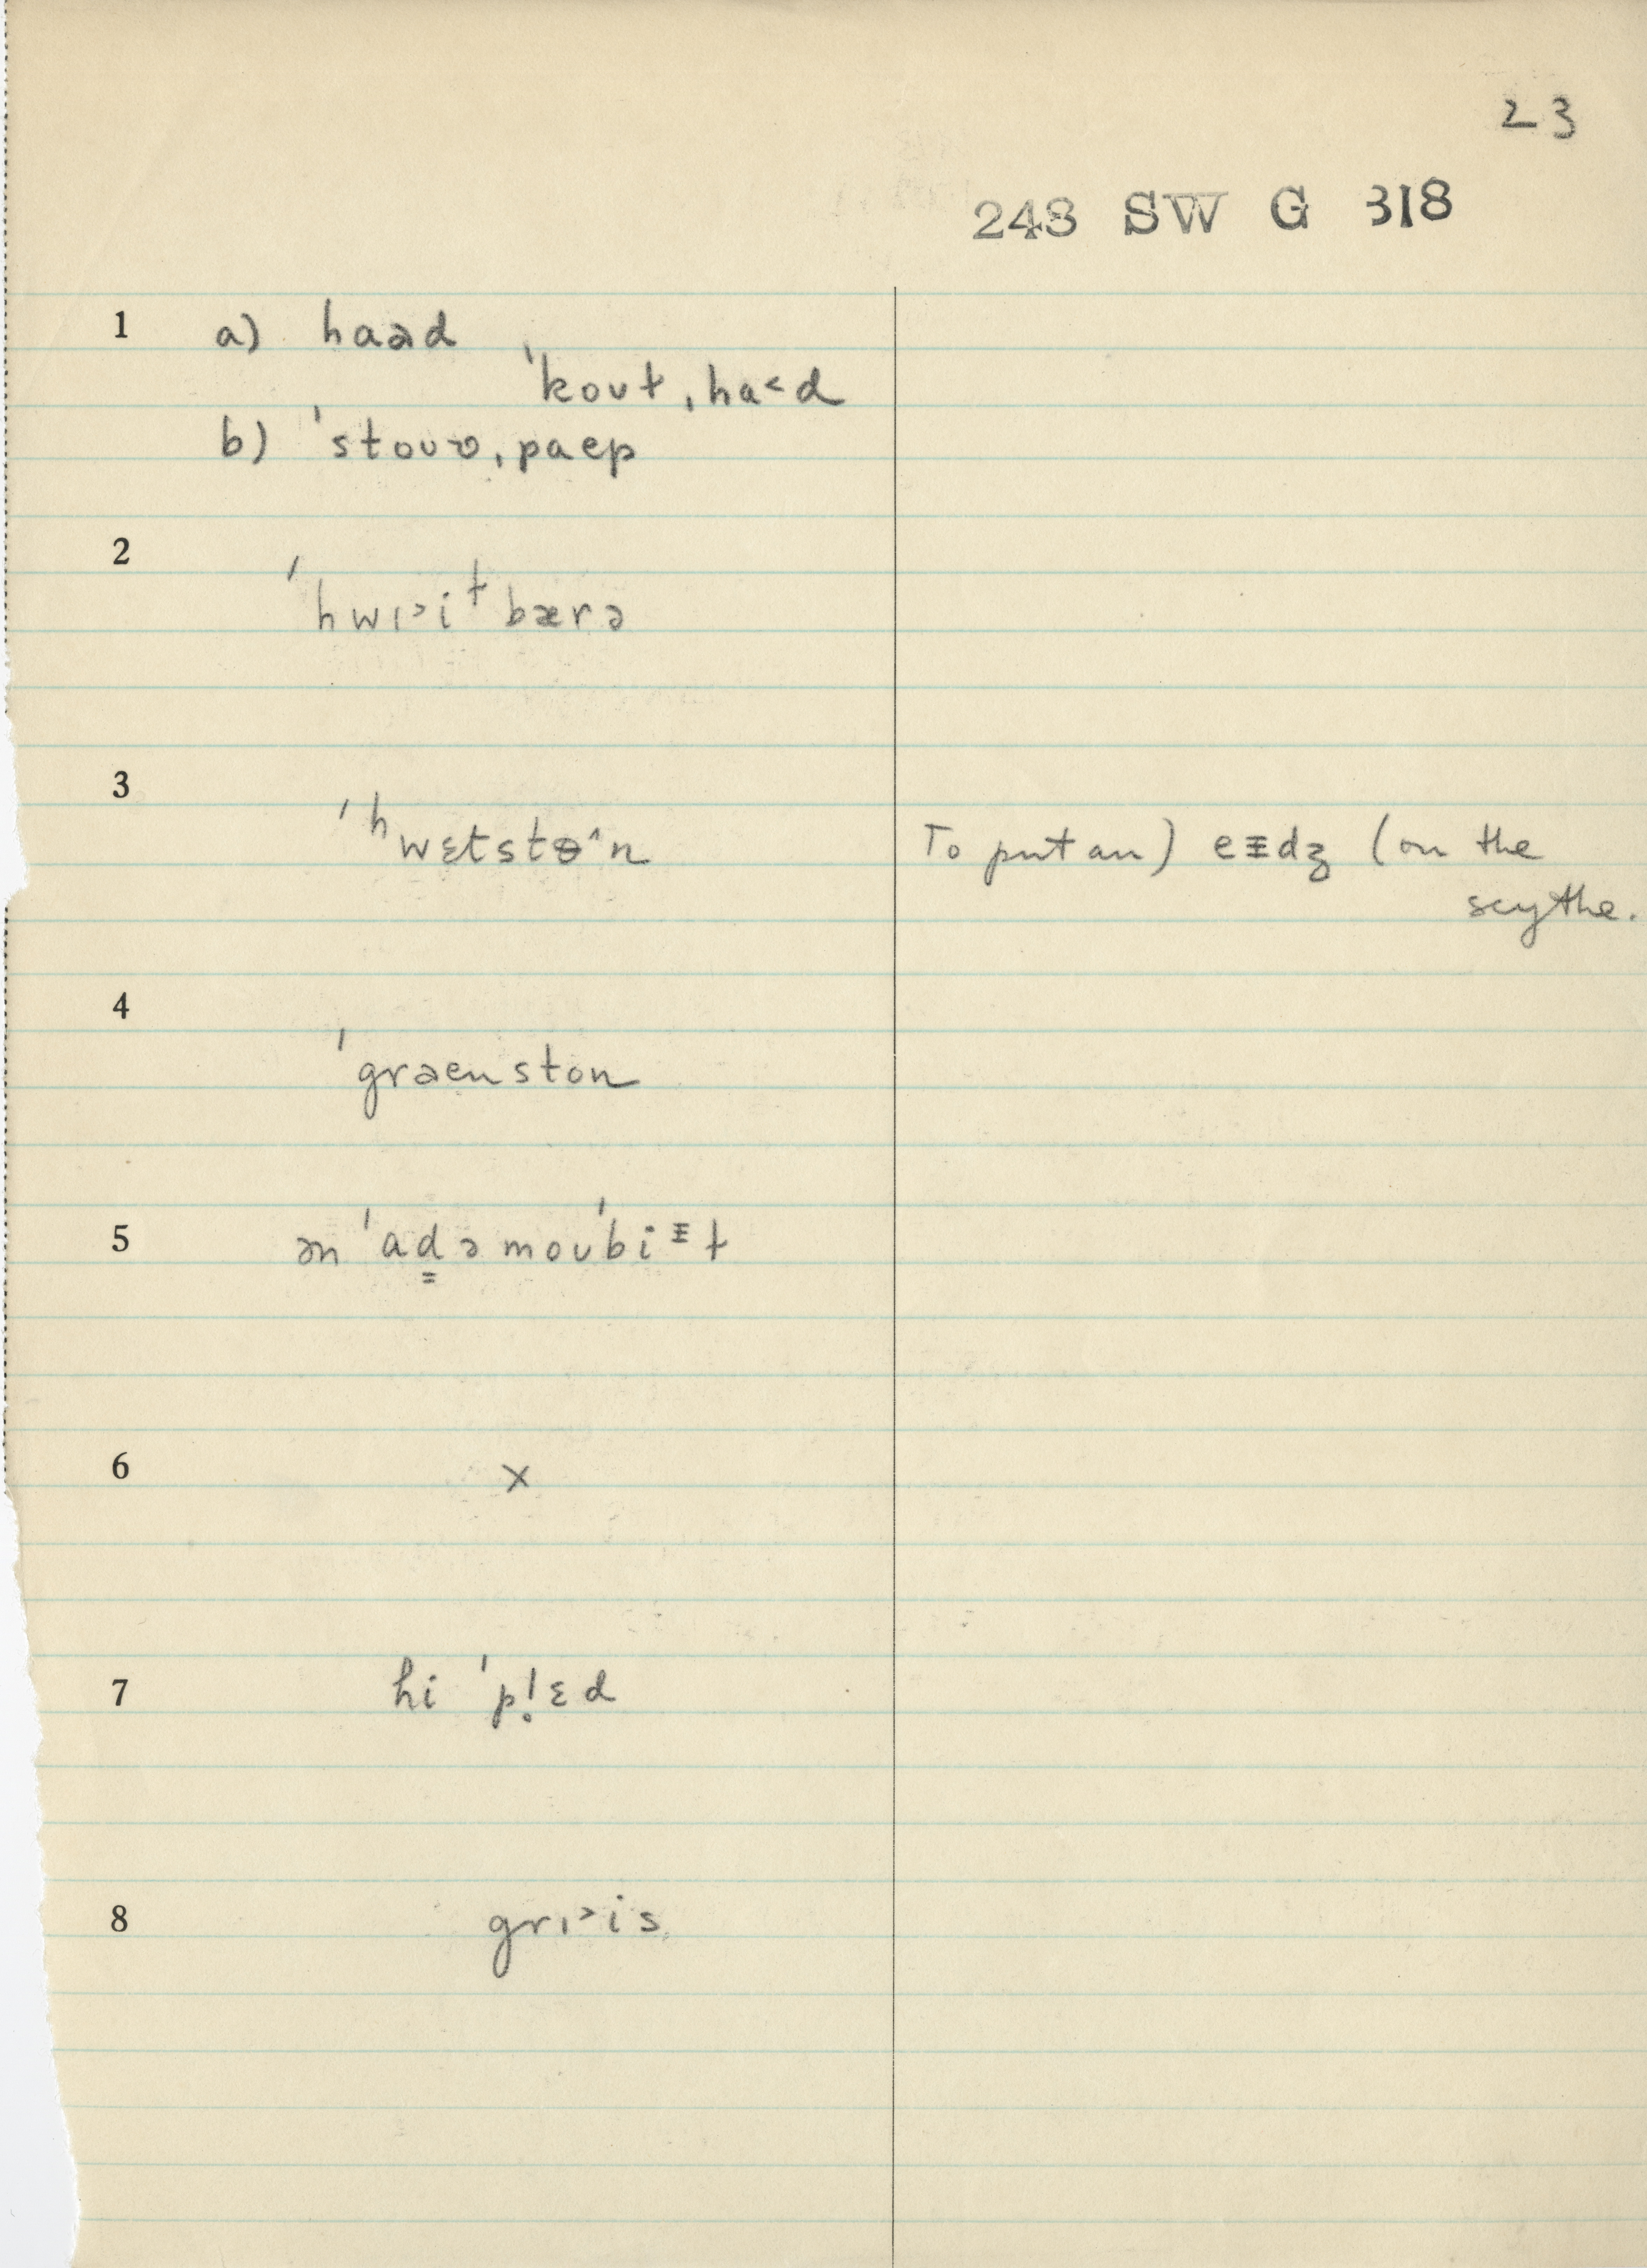 23
248 SW G 318
1 a) haəd
ˈkoʊt ˌha˂d
b) ˈstoʊʋ ˌpaep
2
ˈhwɪ˃iɫbærə
3
ˈʰwɛtstɵ˄n To put an) eɪdʒ (on the
scythe.
4
ˈgraenston
5 ən ˈad̳əmoʊˈbiɪɫ
6 ×
7 hi ˈpl̥ɛd
8 grɪ˃is